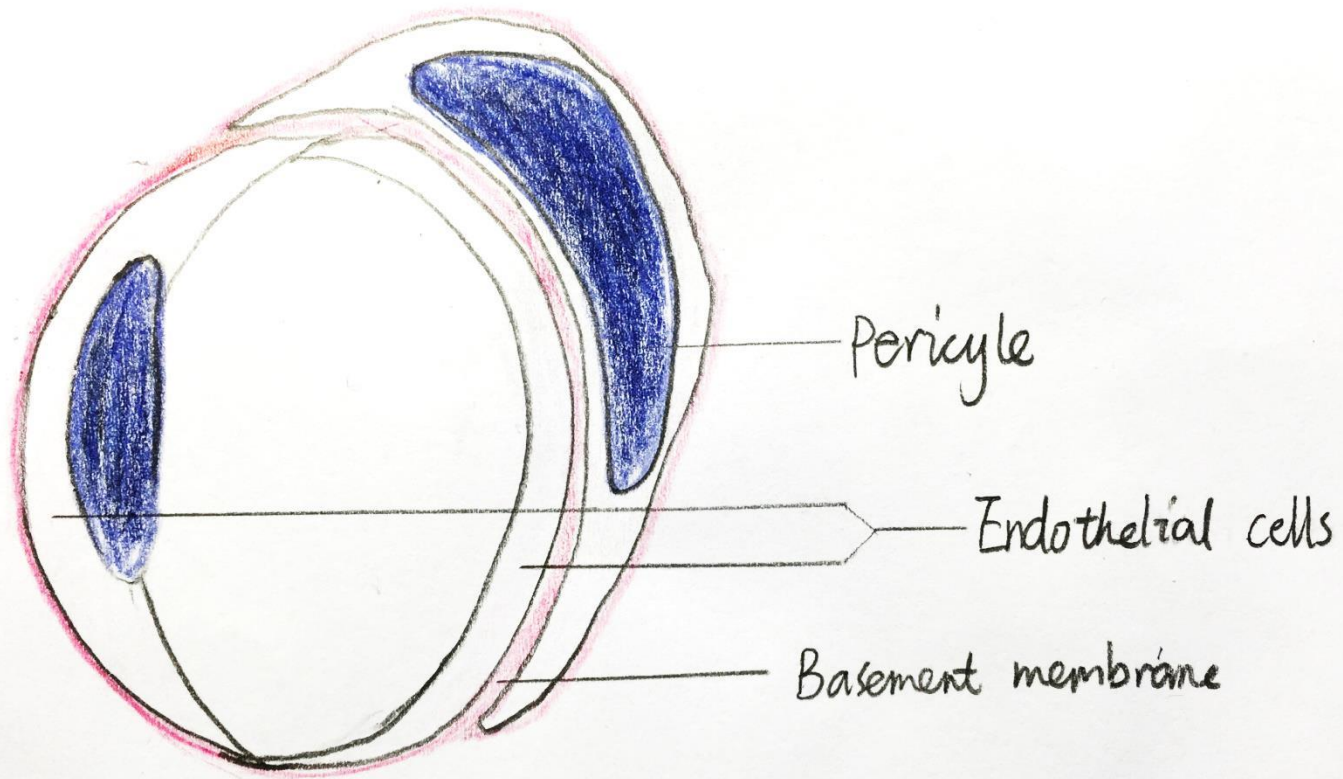 Pericyle
Endothelial cells
Basement membrane